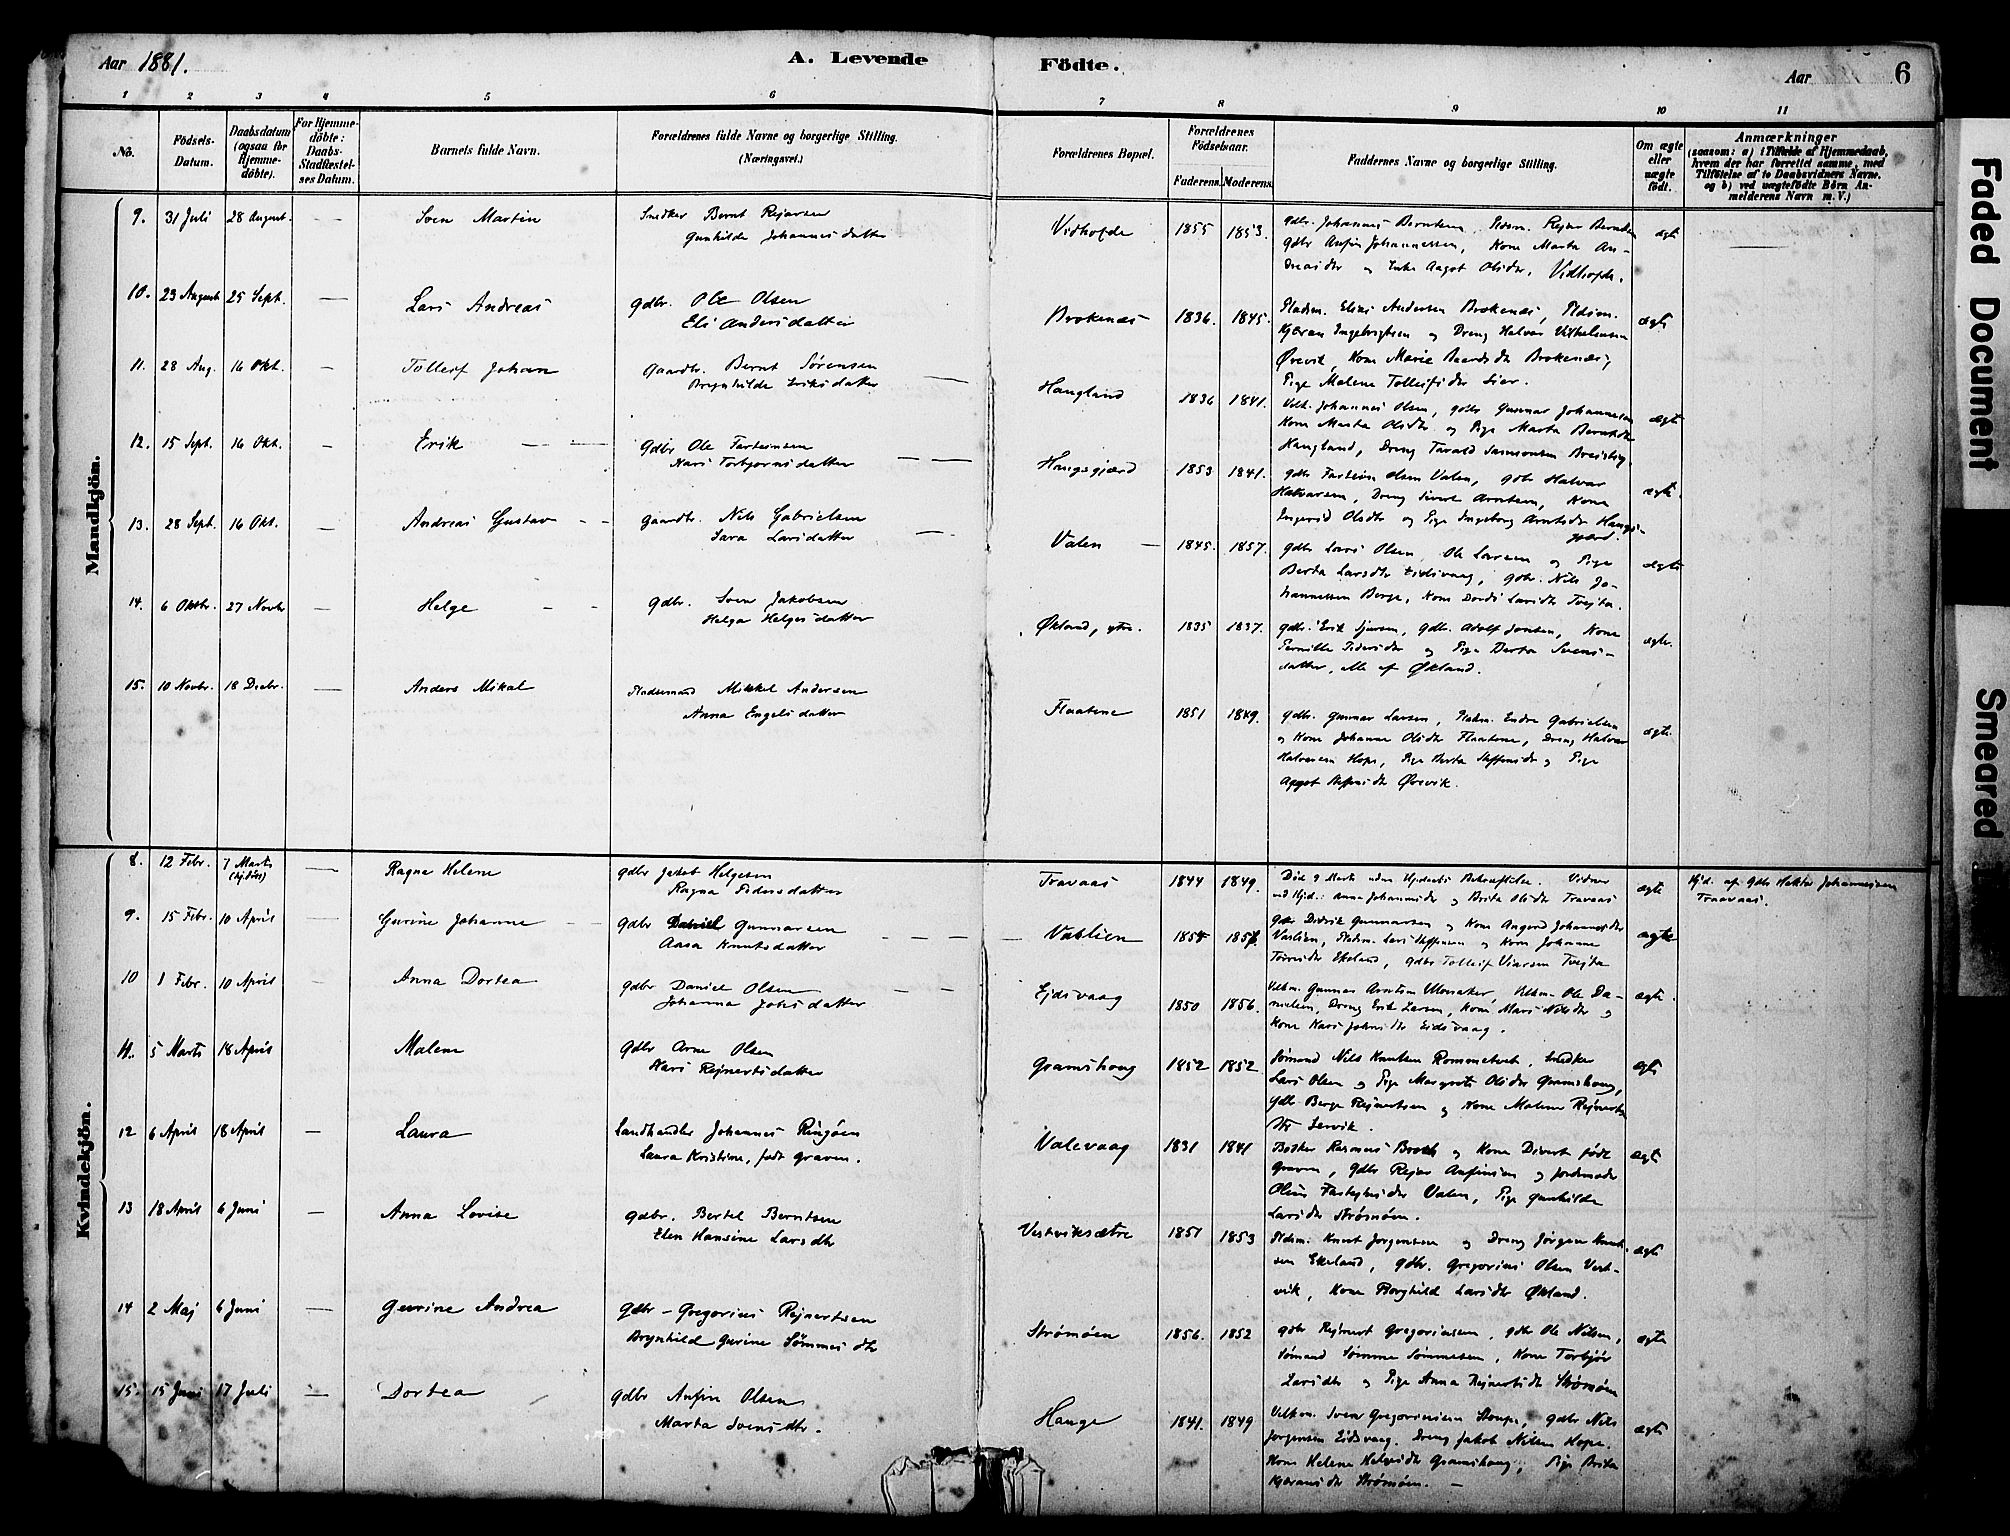 Aar 1881.
A. Levende Födte.
Aar
6
1 2 3 4 5 6 7 8 9 10 11
No.
Födsels-Datum.
Daabsdatum (ogsaa for Hjemme-döbte).
For Hjemme-döbte: Daabs-Stadfæstel-ses Datum.
Barnets fulde Navn.
Forældrenes fulde Navne og borgerlige Stilling. (Næringsvei.)
Forældrenes Bopæl.
Forældrenes Födselsaar.
Faderens. Moderens.
Faddernes Navne og borgerlige Stilling.
Om ægte eller uægte födt.
Anmærkninger
(saasom: a) i Tilfælde af Hjemmedaab,
hvem der har forrettet samme, med
Tilföielse af to Daabsvidners Navne,
og b) ved uægtefödte Börn An-
melderens Navn m. V.)
Mandkjön.
9. 31 Juli 28 August. — Sven Martin Snedker Bernt Rejarsen
Gunhilde Johannesdatter
Vidhofde 1855 1853. ægte
Gdbr. Johannes Berntsen, Pldsm. Rejar Berntsen
Gdbr Anfin Johannessen, Kone Marta An-
dreasdtr og Enke Aagot Olsdtr, Vidhofde.
10. 23 August 25 Sept. — Lars Andreas gdbr. Ole Olsen
Eli Andersdatter
Brokenæs 1836. 1845. ægte
Pladsm. Elias Andersen Brokenæs, Pldsm.
Kjøran Ingebrigtsen og Dreng Halvar Vilhelmsen
Øvrevik, Kone Marie Baardsdtr Brokenæs,
Pige Malene Tolleifsdtr Sier.
11. 28 Aug. 16 Okt. — Tolleif Johan Gaardbr. Bernt Sørensen
Brynhilde Eriksdatter —
Haugland 1836 1841. ægte
Johannes Olsen, gdbr Gunnar Johannessen
Kone Marta Olsdtr og Pige Marta Berntsdtr
Haugland, Dreng Tarald Samsonsen
12. 15 Sept. 16 Okt. — Erik — — Gdbr Ole Tarteinsen
Kari Torbjørnsdatter — —
Haugsgjærd 1853 1841. ægte
gdbr Farteinn Olsen Valen, gdbr Halvar
Halvarsen, Dreng Sivert Arntsen, Kone
Ingerid Olsdtr og Pige Ingeborg Arntsdtr Haugs-
gjærd.
13. 28 Sept. 16 Okt. — Andreas Gustav — — Gaardbr. Nils Gabrielsen
Sara Larsdatter —
Valen — 1845. 1857. ægte
gdbr Lars Olsen, Ole Larsen og Pige
Berta Larsdtr Eidsvaag, gdbr. Nils Jo-
hannessen Berge, Kone Dordi Larsdtr Tvejta.
14. 6 Oktbr. 27 Novbr — Helge — — gdbr. Sven Jakobsen
Helga Helgesdatter
Økland, ytre. 1835 1837. ægte.
gdbr. Erik Sjursen, gdbr. Adolf Jonsen, Kone
Pernille Pedersdtr og Pige Berta Svens-
datter, alle af Økland.
15. 10 Novbr. 18 Decbr. — Anders Mikal Pladsemand Mikkel Andersen
Anna Engelsdatter
Flaatene 1851 1849. ægte.
gdbr. Gunnar Larsen, Pladsm. Endre Gabrielsen
og Kone Johanne Olsdtr Flaatene, Dreng Halvar
Halvarsen Hope, Pige Berta Steffensdtr og Pige
Aagot Steffensdtr Øvrevik.
Kvindekjön.
8. 12 Febr. 7 Marts (hj.døbt) — Ragna Helene gdbr Jakob Helgesen
Ragna Pedersdatter
Travaas 1844 1849. ægte
Død 9 Marts uden Hjdaabs Bekræftelse. Vidner
ved Hjd.: Anna Johannesdtr og Brita Olsdtr Travaas
Hjd. af gdbr Hektor Johannessen
Traavaas.
9. 15 Febr. 10 April — Gurine Johanne — — gdbr Daniel Gunnarsen
Aasa Knutsdatter — — —
Vaslien 1854 1857. ægte
Gdbr Didrik Gunnarsen og Kone Angerd Johannesdtr
Vaslien, Pladsm. Lars Steffensen og Kone Johanne
Ekeland, gdbr Tolleif Vinarsen Tvejta
10 1 Febr. 10 April — Anna Dortea gdbr Daniel Olsen
Johanna Johsdatter — —
Ejdsvaag 1850 1856. ægte.
Gunnar Arntsen, Ole Da-
nielsen, Dreng Erik Larsen, Kone Mari Nilsdtr og
Kone Kari Johnsdtr Eidsvaag.
11. 5 Marts 18 April Malene Gdbr Arne Olsen
Kari Rejnertsdatter
Gramshaug 1852 1852. ægte
Sømand Nils Knutsen Rommetveit, Snedker
Lars Olsen og Pige Margrete Olsdtr Gramshaug,
Gdbr Berge Rejnertsen og Kone Malene Rejnerts-
dtr Lervik.
12 6 April 18 April — Laura Landhandler Johannes Ringøen
Laura Kristine, født Graven.
Valevaag 1831 1841 ægte
Bødker Rasmus Broch og Kone Divert født
Graven, Gdbr Rejar Anfinsen og Jordmoder
Valen, Pige Gunhilde
Larsdtr Strømøen.
13 18 April 6 Juni — Anna Lovise gdbr. Bertel Berntsen
Elen Hansine Larsdtr
Vestviksætre 1851 1853 ægte
Pldsm. Knut Jorgensen og Dreng Jørgen Knut-
sen Ekeland, gdbr. Gregorius Olsen Vest-
vik, Kone Borghild Larsdtr Økland.
14 2 Maj 6 Juni — Gurine Andrea Gdbr — Gregorius Rejnertsen
Brynhild Gurine Sømmesdtr
Strømøen 1856. 1852 ægte
gdbr Rejnert Gregoriussen, gdbr Ole Nilsen,
Sømand Sømme Sømmesen, Kone Torbjør
Larsdtr og Pige Anna Rejnertsdtr Strømøen
15. 15 Juni 17 Juli — Dortea gdbr Anfin Olsen
Marta Svensdtr.
Hauge 1841. 1849 ægte
Sven Gregoriussen Staupe, gdbr Nils
Jorgensen Eidsvaag, Dreng Jakob Nilsen Hope.
Kone Helene Helgesdtr Gramshaug, Pige Brita
Kjøransdtr Strømøen. —
Faded Document
Smeared